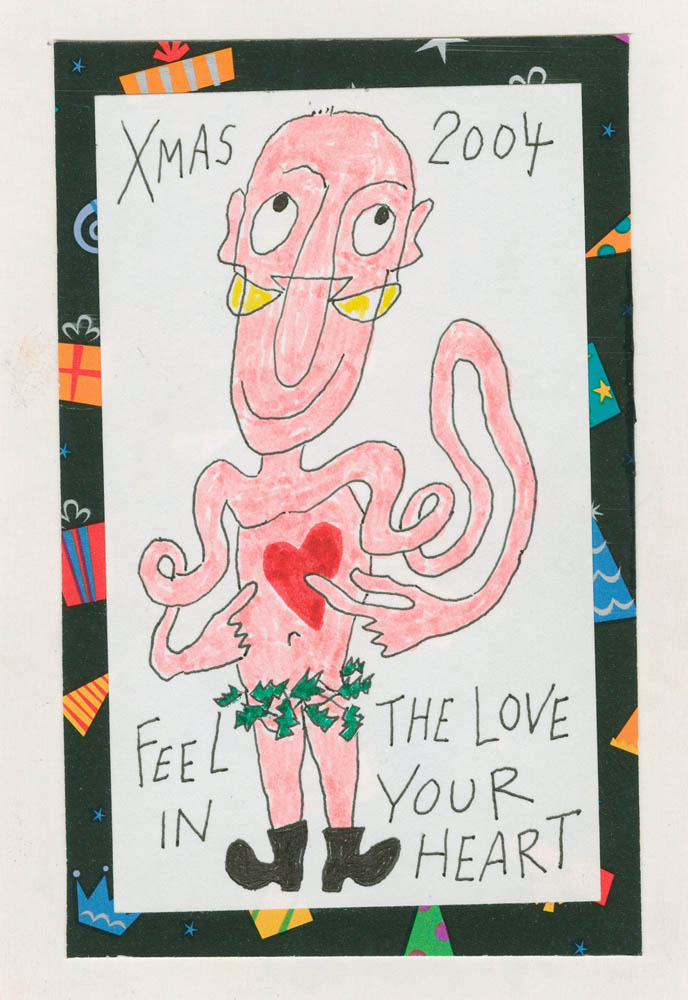 XMAS 2004
FEEL THE LOVE
IN YOUR
HEART